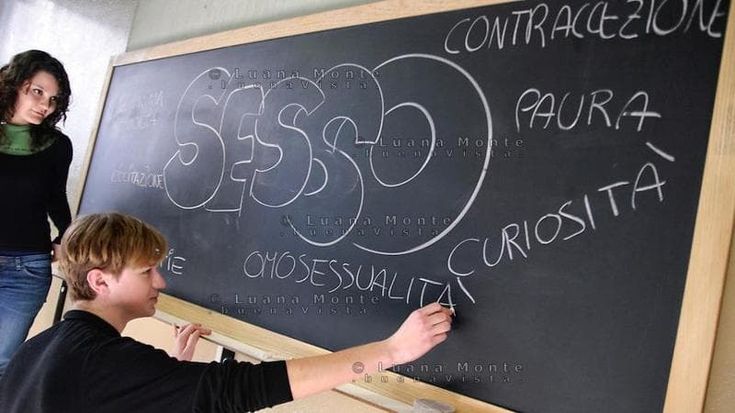 CONTRACCEZIONE
SESSO
PAURA
ECCITAZIONE
CURIOSITÀ
OMOSESSUALITÀ
© Luana Monte
.buenaVista.
© Luana Monte
.buenaVista.
© Luana Monte
.buenaVista.
© Luana Monte
.buenaVista.
© Luana Monte
.buenaVista.